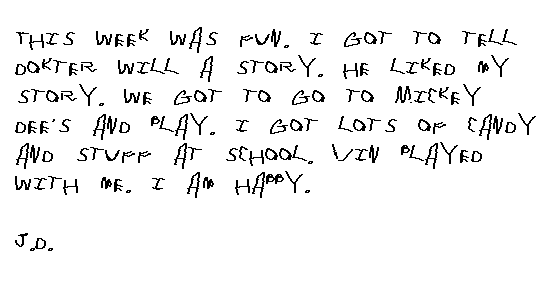 THIS WEEK WAS FUN. I GOT TO TELL
DOKTER WILL A STORY. HE LIKED MY
STORY. WE GOT TO GO TO MICKEY
DEE'S AND PLAY. I GOT LOTS OF CANDY
AND STUFF AT SCHOOL. VIN PLAYED
WITH ME. I AM HAPPY.
J.D.